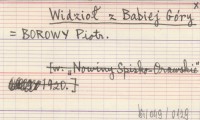 x
Widział z Babiej Góry
= BOROWY Piotr.
[w. „Nowiny Spisko-Orawskie"
1920.]